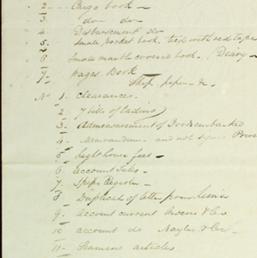 2 - Cargo book -
3 - do - do -
4 Disbursement do
5 - Small pocket book, tied with red tape
6 - Small marble covered book. (Diary -
7 - Wages Book
Ship papers &c.
No 1 - Clearances.
2 - 7 bills of lading
3 - Admeasurement of
4 - Memorandum - and not
5 - Lighthouse fees -
6 - account sales -
7 - Ships Register -
8 - Duplicate of letter from
9 - account current Moore & Co
10 - account do Naylor & Co -
11 - Seamens articles